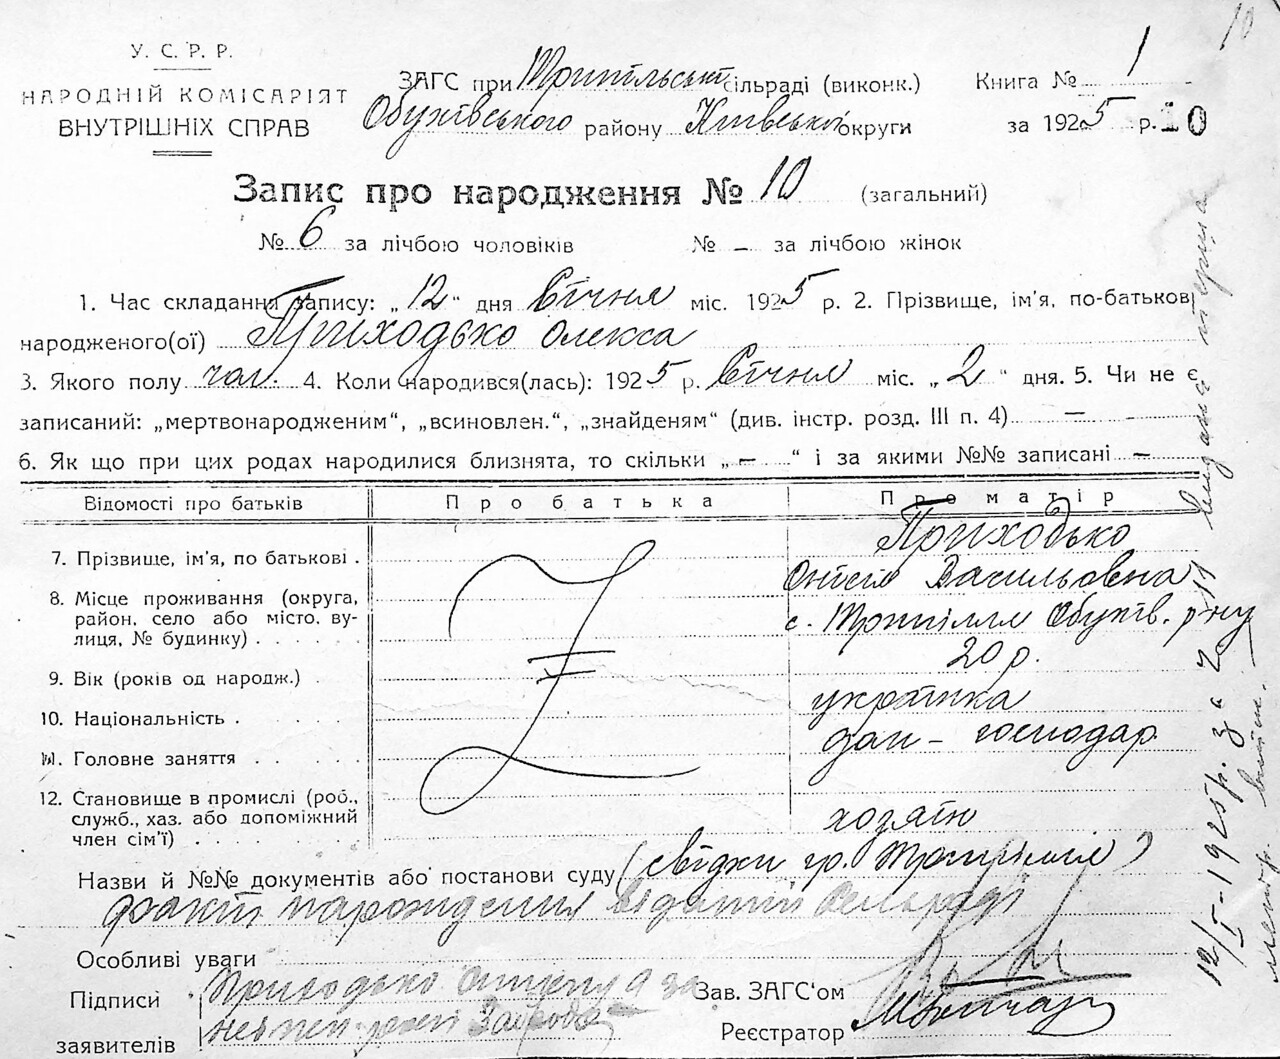 У. С. Р. Р.
НАРОДНІЙ КОМІСАРІЯТ
ВНУТРІШНІХ СПРАВ
ЗАГС при Трипільській сільраді (виконк.)
Обухівського району Київської округи
Книга № 1
за 1925 р. 10
10
Запис про народження № 10 (загальний)
№ 6 за лічбою чоловіків № – за лічбою жінок
1. Час складання запису: „12" дня Січня міс. 1925 р. 2. Прізвище, ім'я, по-батькові
народженого(ої) Приходько Олекса
3. Якого полу чол. 4. Коли народився(лась): 1925 р. Січня міс. „2" дня. 5. Чи не є
записаний: „мертвонародженим“, „всиновлен.“, „знайденям“ (див. інстр. розд. III п. 4) —
6. Як що при цих родах народилися близнята, то скільки „–“ і за якими №№ записані –
Відомості про батьків Про батька Про матір
7. Прізвище, ім'я, по батькові . Приходько
Василовна
8. Місце проживання (округа,
район, село або місто, ву-
лиця, № будинку) . . . . . с. Трипілля Обухів. р-ну
9. Вік (років од народж.) . 20 р.
10. Національність . . . . українка
11. Головне заняття . . . . дом – господар
12. Становище в промислі (роб.,
служб., хаз. або допоміжний
член сім'ї) . . . . . . . хозяїн
Назви й №№ документів або постанови суду (свідки гр. Трипілля)
Особливі уваги
Підписи
заявителів
Приходько
Зав. ЗАГС'ом
Реєстратор
12/I–1925 р. за № 11